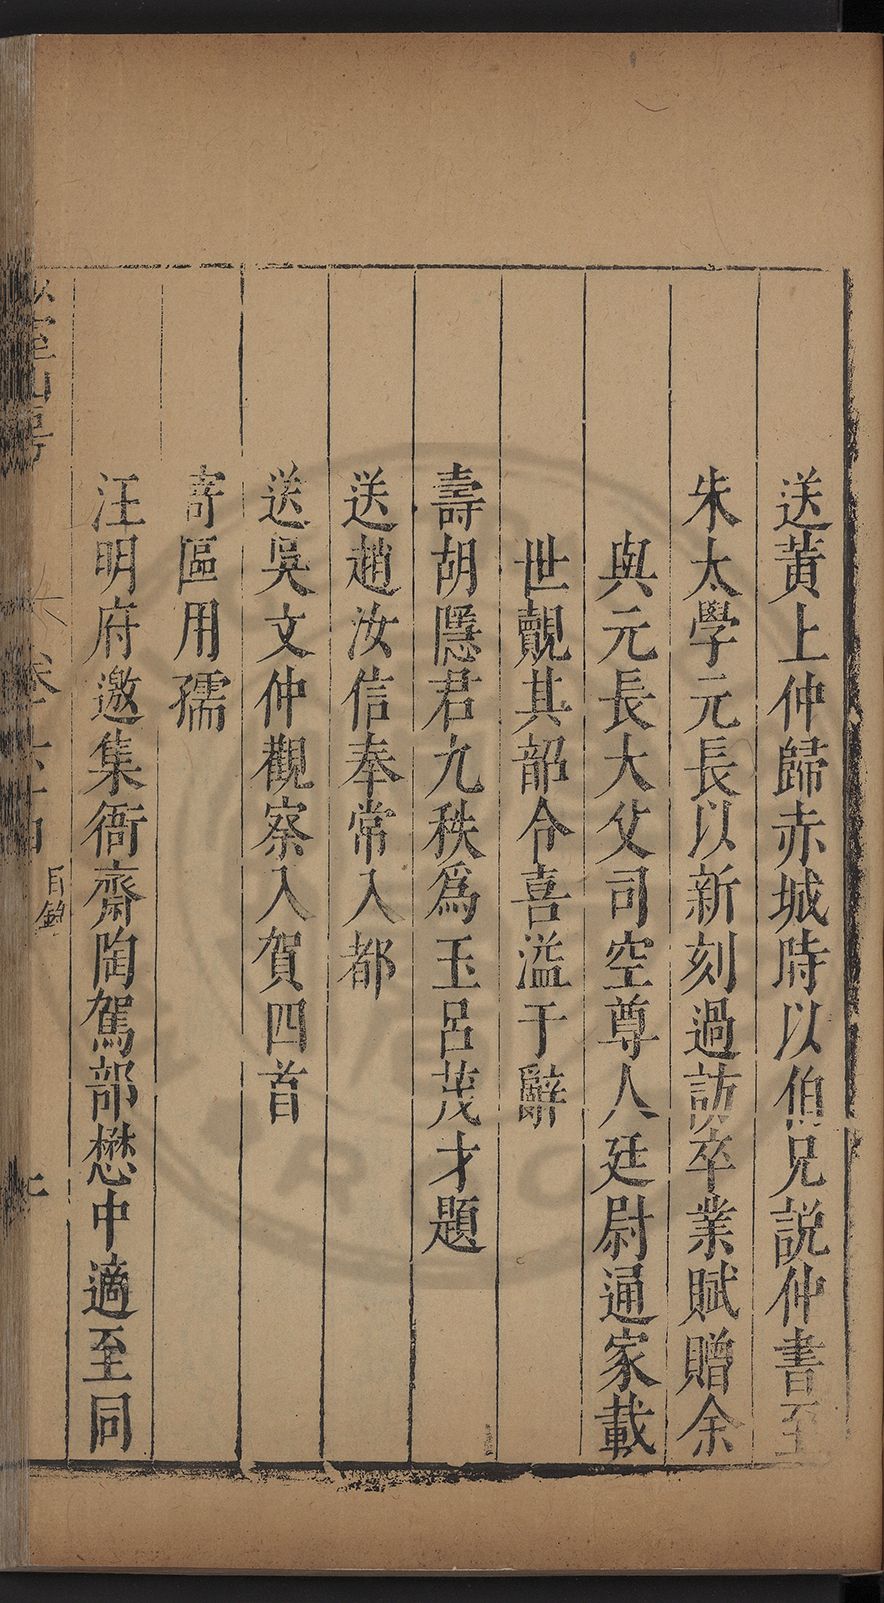 送黃上仲歸赤城時以伯兄説仲書至
朱太學元長以新刻過訪卒業賦贈余
與元長大父司空尊人廷尉通家載
世覿其韶令喜溢于辭
壽胡隱君九秩爲玉呂茂才題
送趙汝信奉常入都
送吳文仲觀察入賀四首
寄區用孺
汪明府邀集衙齋陶駕部懋中適至同
目錄